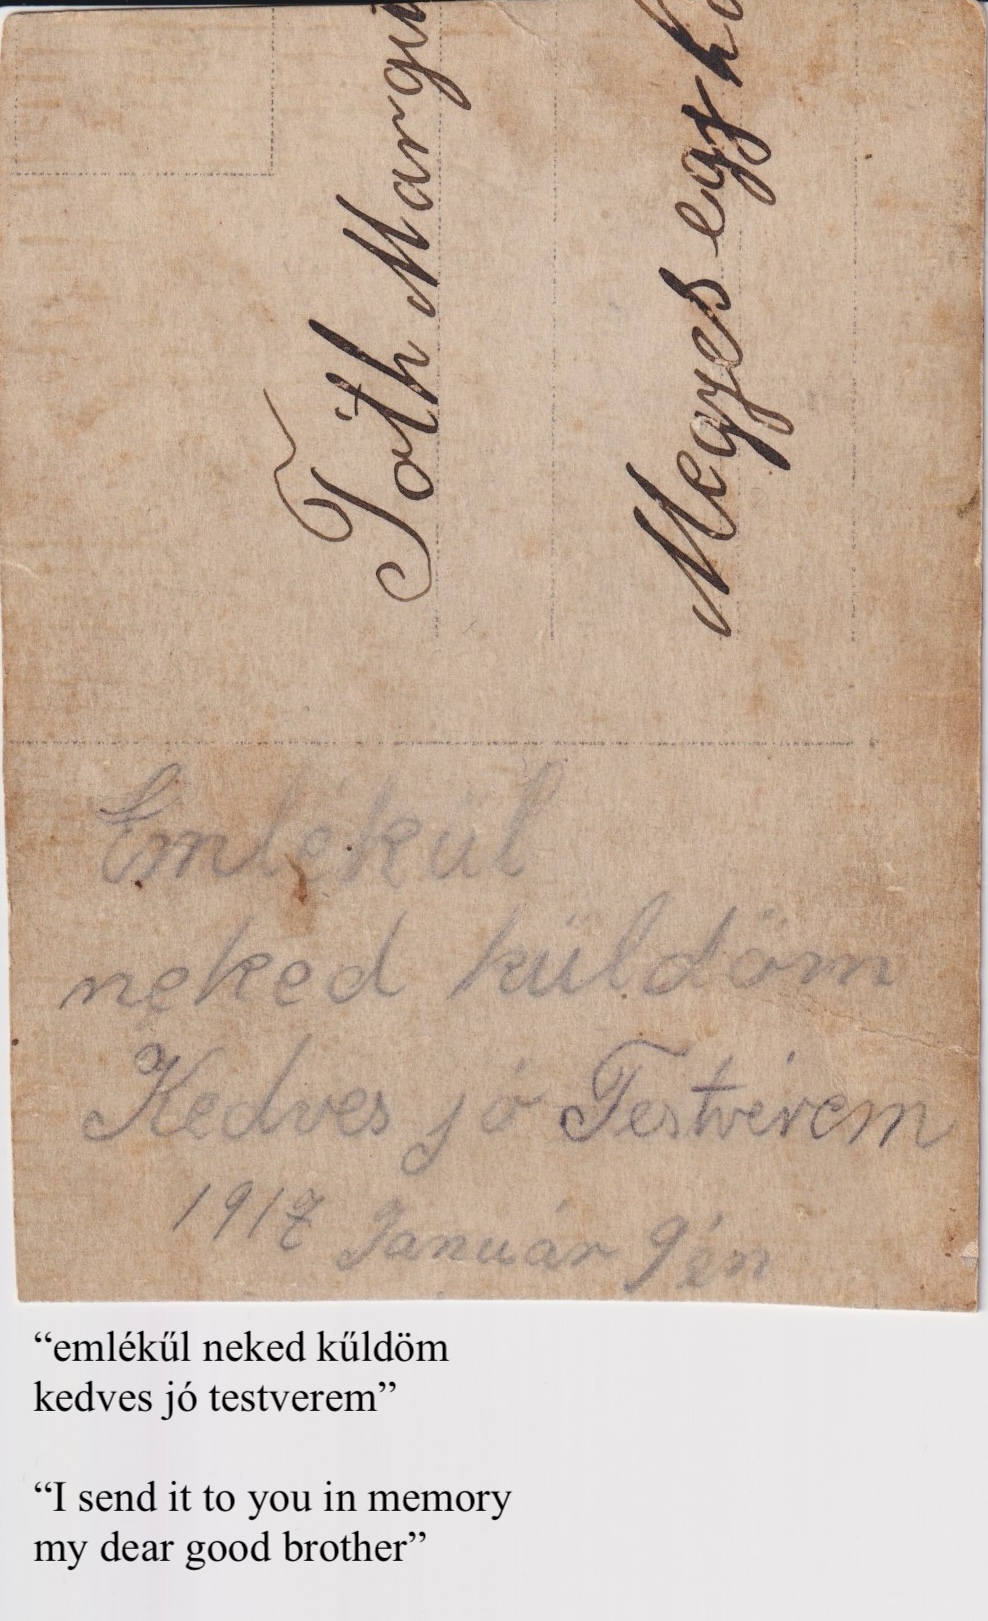 Tóth
Megyes
Emlékül
neked küldöm
Kedves jó Testvérem
1917 Január 9én
“emlékűl neked kűldöm
kedves jó testverem”
“I send it to you in memory
my dear good brother”